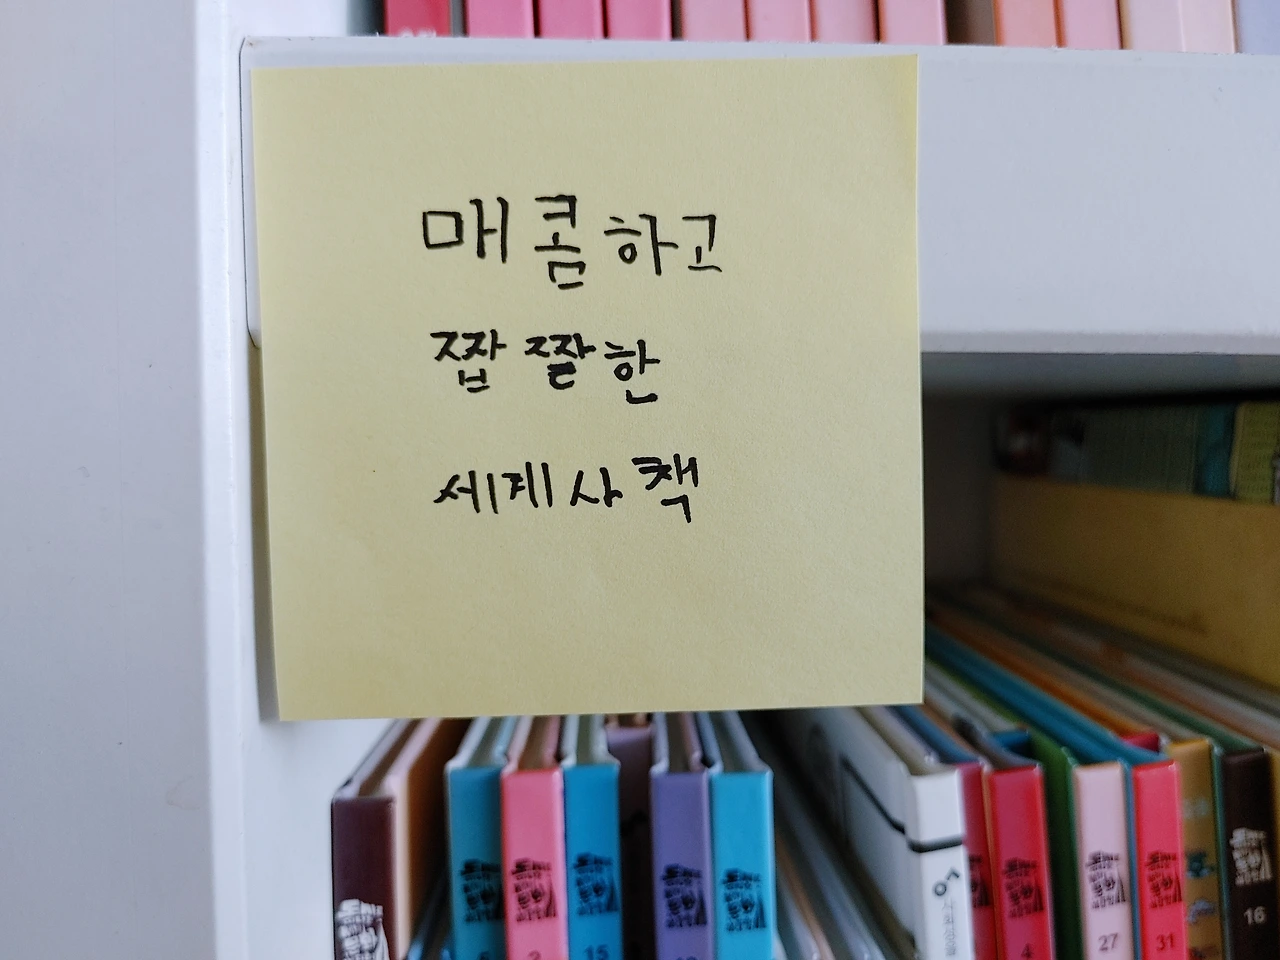 매콤하고
짭짤한
세계사책
2
15
4
27
31
16